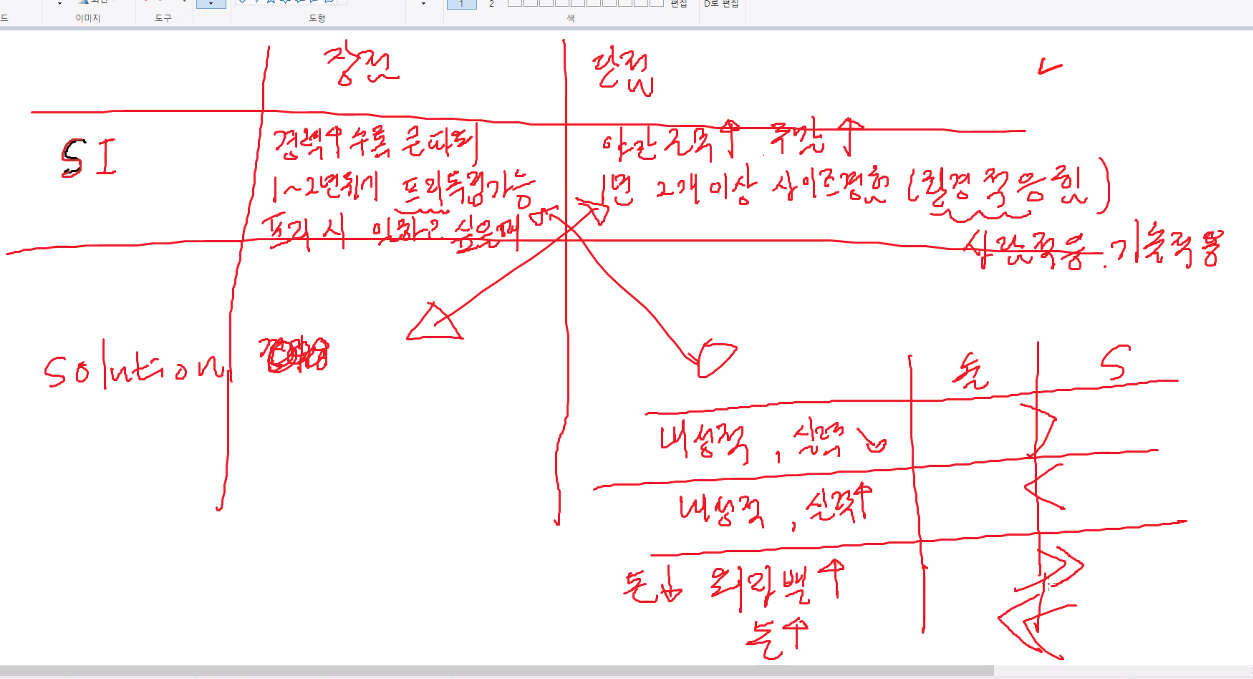 이미지
도구
도형
1 2
색
편집
D로 편집
장점 단점
SI
경력↑ 수록 큰파워
1~2년뒤에 프리독립가능
프리 시 인하? 싶을때
야간근무↑ 주말↑
1년 2개이상 상이조경험 (환경적응힘)
사람적응. 기술적응
Solution
돈 S
내성적, 실력↓
내성적, 실력↑
돈↓ 워라벨↑
돈↑